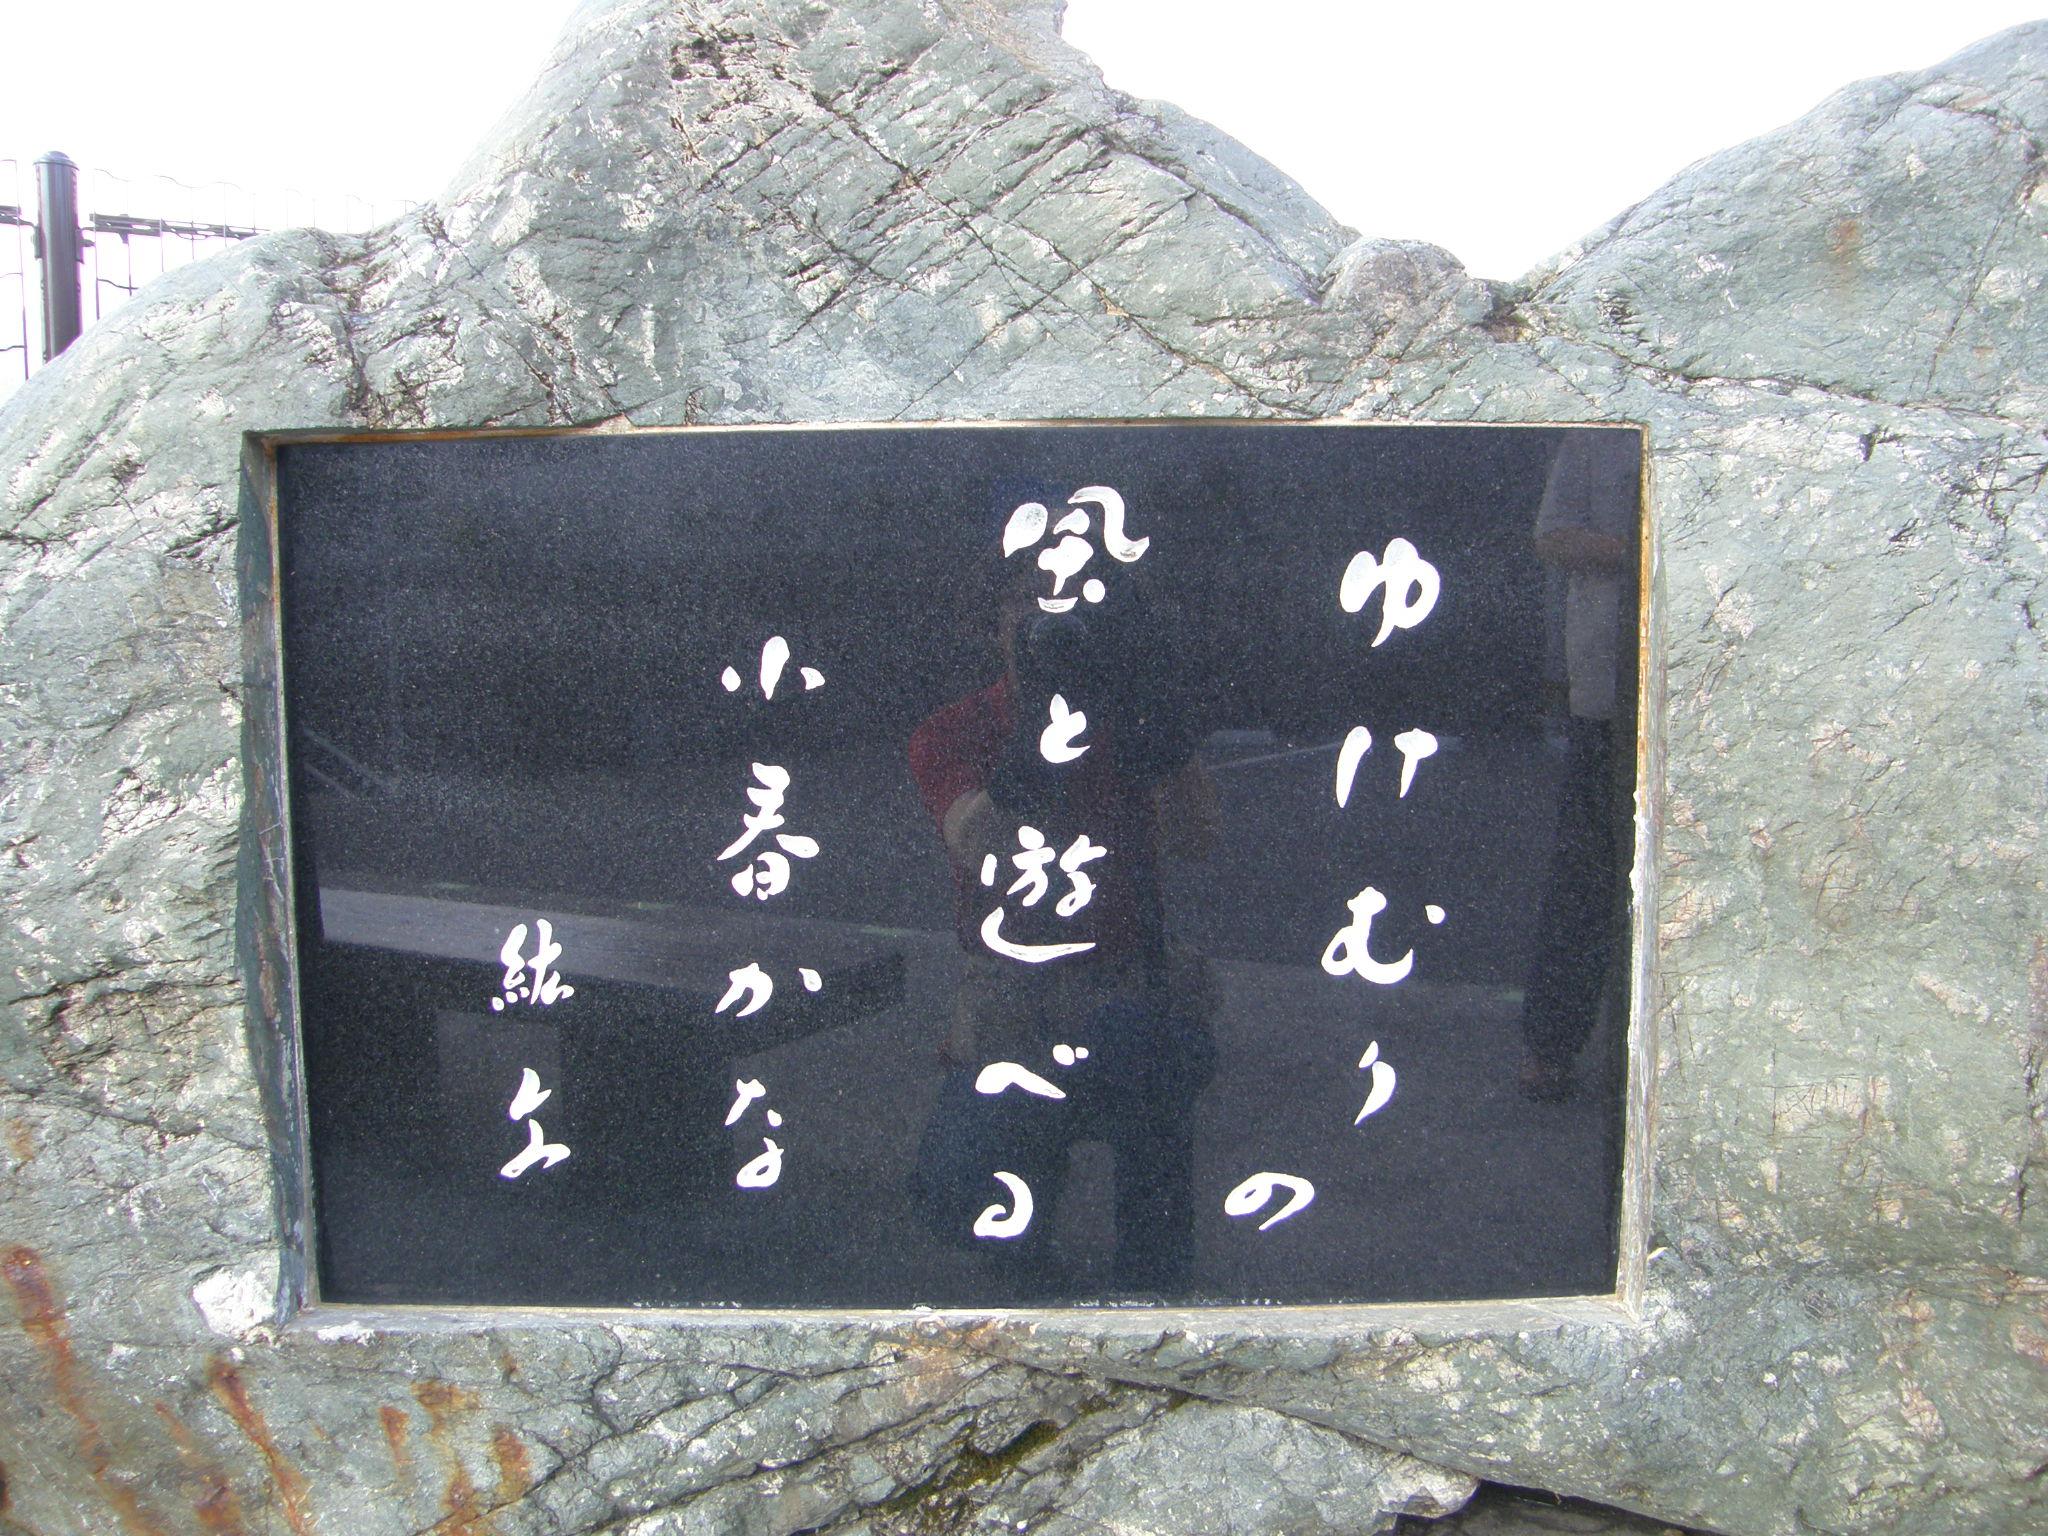 ゆけむりの
風と遊べる
小春かな
紘